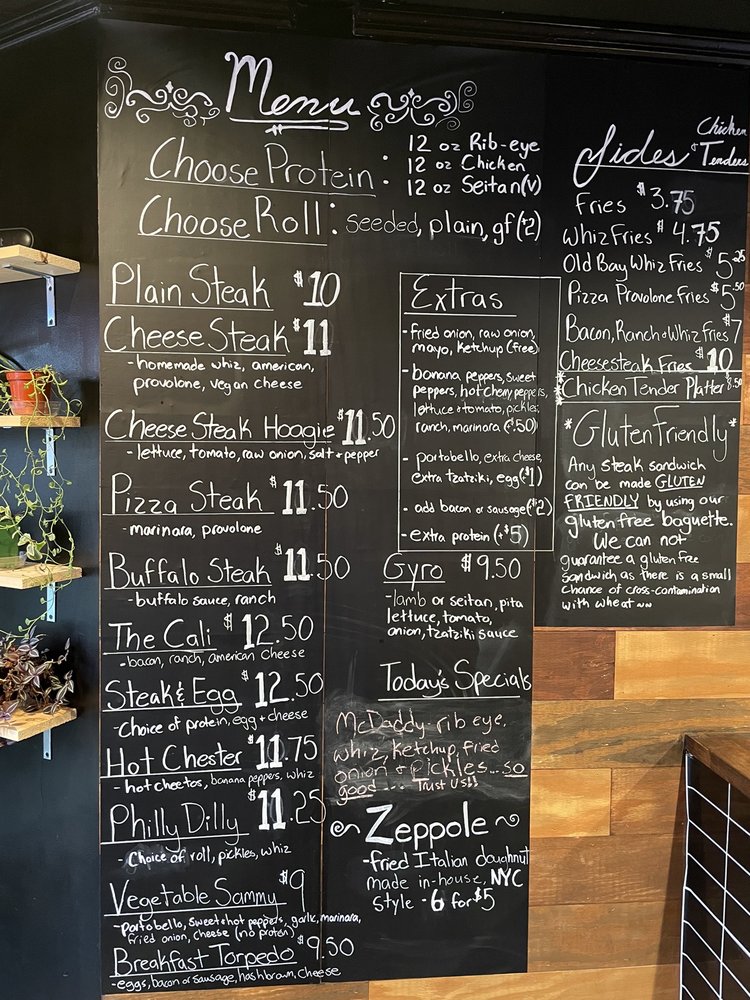 Menu
Choose Protein:
12 oz Rib-eye
12 oz Chicken
12 oz Seitan(v)
Choose Roll: seeded, plain, gf (+2)
Plain Steak $10
Cheese Steak $11
- homemade whiz, american,
provolone, vegan cheese
Cheese Steak Hoagie $11.50
- lettuce, tomato, raw onion, salt + pepper
Pizza Steak $11.50
- marinara, provolone
Buffalo Steak $11.50
- buffalo sauce, ranch
The Cali $12.50
- bacon, ranch, american cheese
Steak & Egg $12.50
- Choice of protein, egg + cheese
Hot Chester $11.75
- hot cheetos, banana peppers, whiz
Philly Dilly $11.25
- Choice of roll, pickles, whiz
Vegetable Sammy $9
- Portobello, sweet + hot peppers, garlic, marinara,
fried onion, cheese (no protein)
Breakfast Torpedo $9.50
- eggs, bacon or sausage, hashbrown, cheese
Extras
- fried onion, raw onion,
mayo, ketchup (free)
- banana peppers, sweet
peppers, hot cherry peppers,
lettuce + tomato, pickles,
ranch, marinara ($.50)
- portobello, extra cheese,
extra tzatziki, egg ($1)
- add bacon or sausage ($2)
- extra protein (+$5)
Gyro $9.50
- lamb or seitan, pita
lettuce, tomato,
onion, tzatziki sauce
Today's Specials
McDaddy- rib eye,
whiz, ketchup, fried
onion + pickles... so
good ... Trust Us!!
~ Zeppole ~
- fried Italian doughnut
made in-house, NYC
style - 6 for $5
Sides & Chicken Tenders
Fries $3.75
Whiz Fries $4.75
Old Bay Whiz Fries $5.25
Pizza Provolone Fries $5.50
Bacon, Ranch & Whiz Fries $7
Cheesesteak Fries $10
Chicken Tender Platter 8.50
*Gluten Friendly*
Any steak sandwich
can be made GLUTEN
FRIENDLY by using our
gluten free baguette.
We can not
guarantee a gluten free
sandwich as there is a small
chance of cross-contamination
with wheat ~~